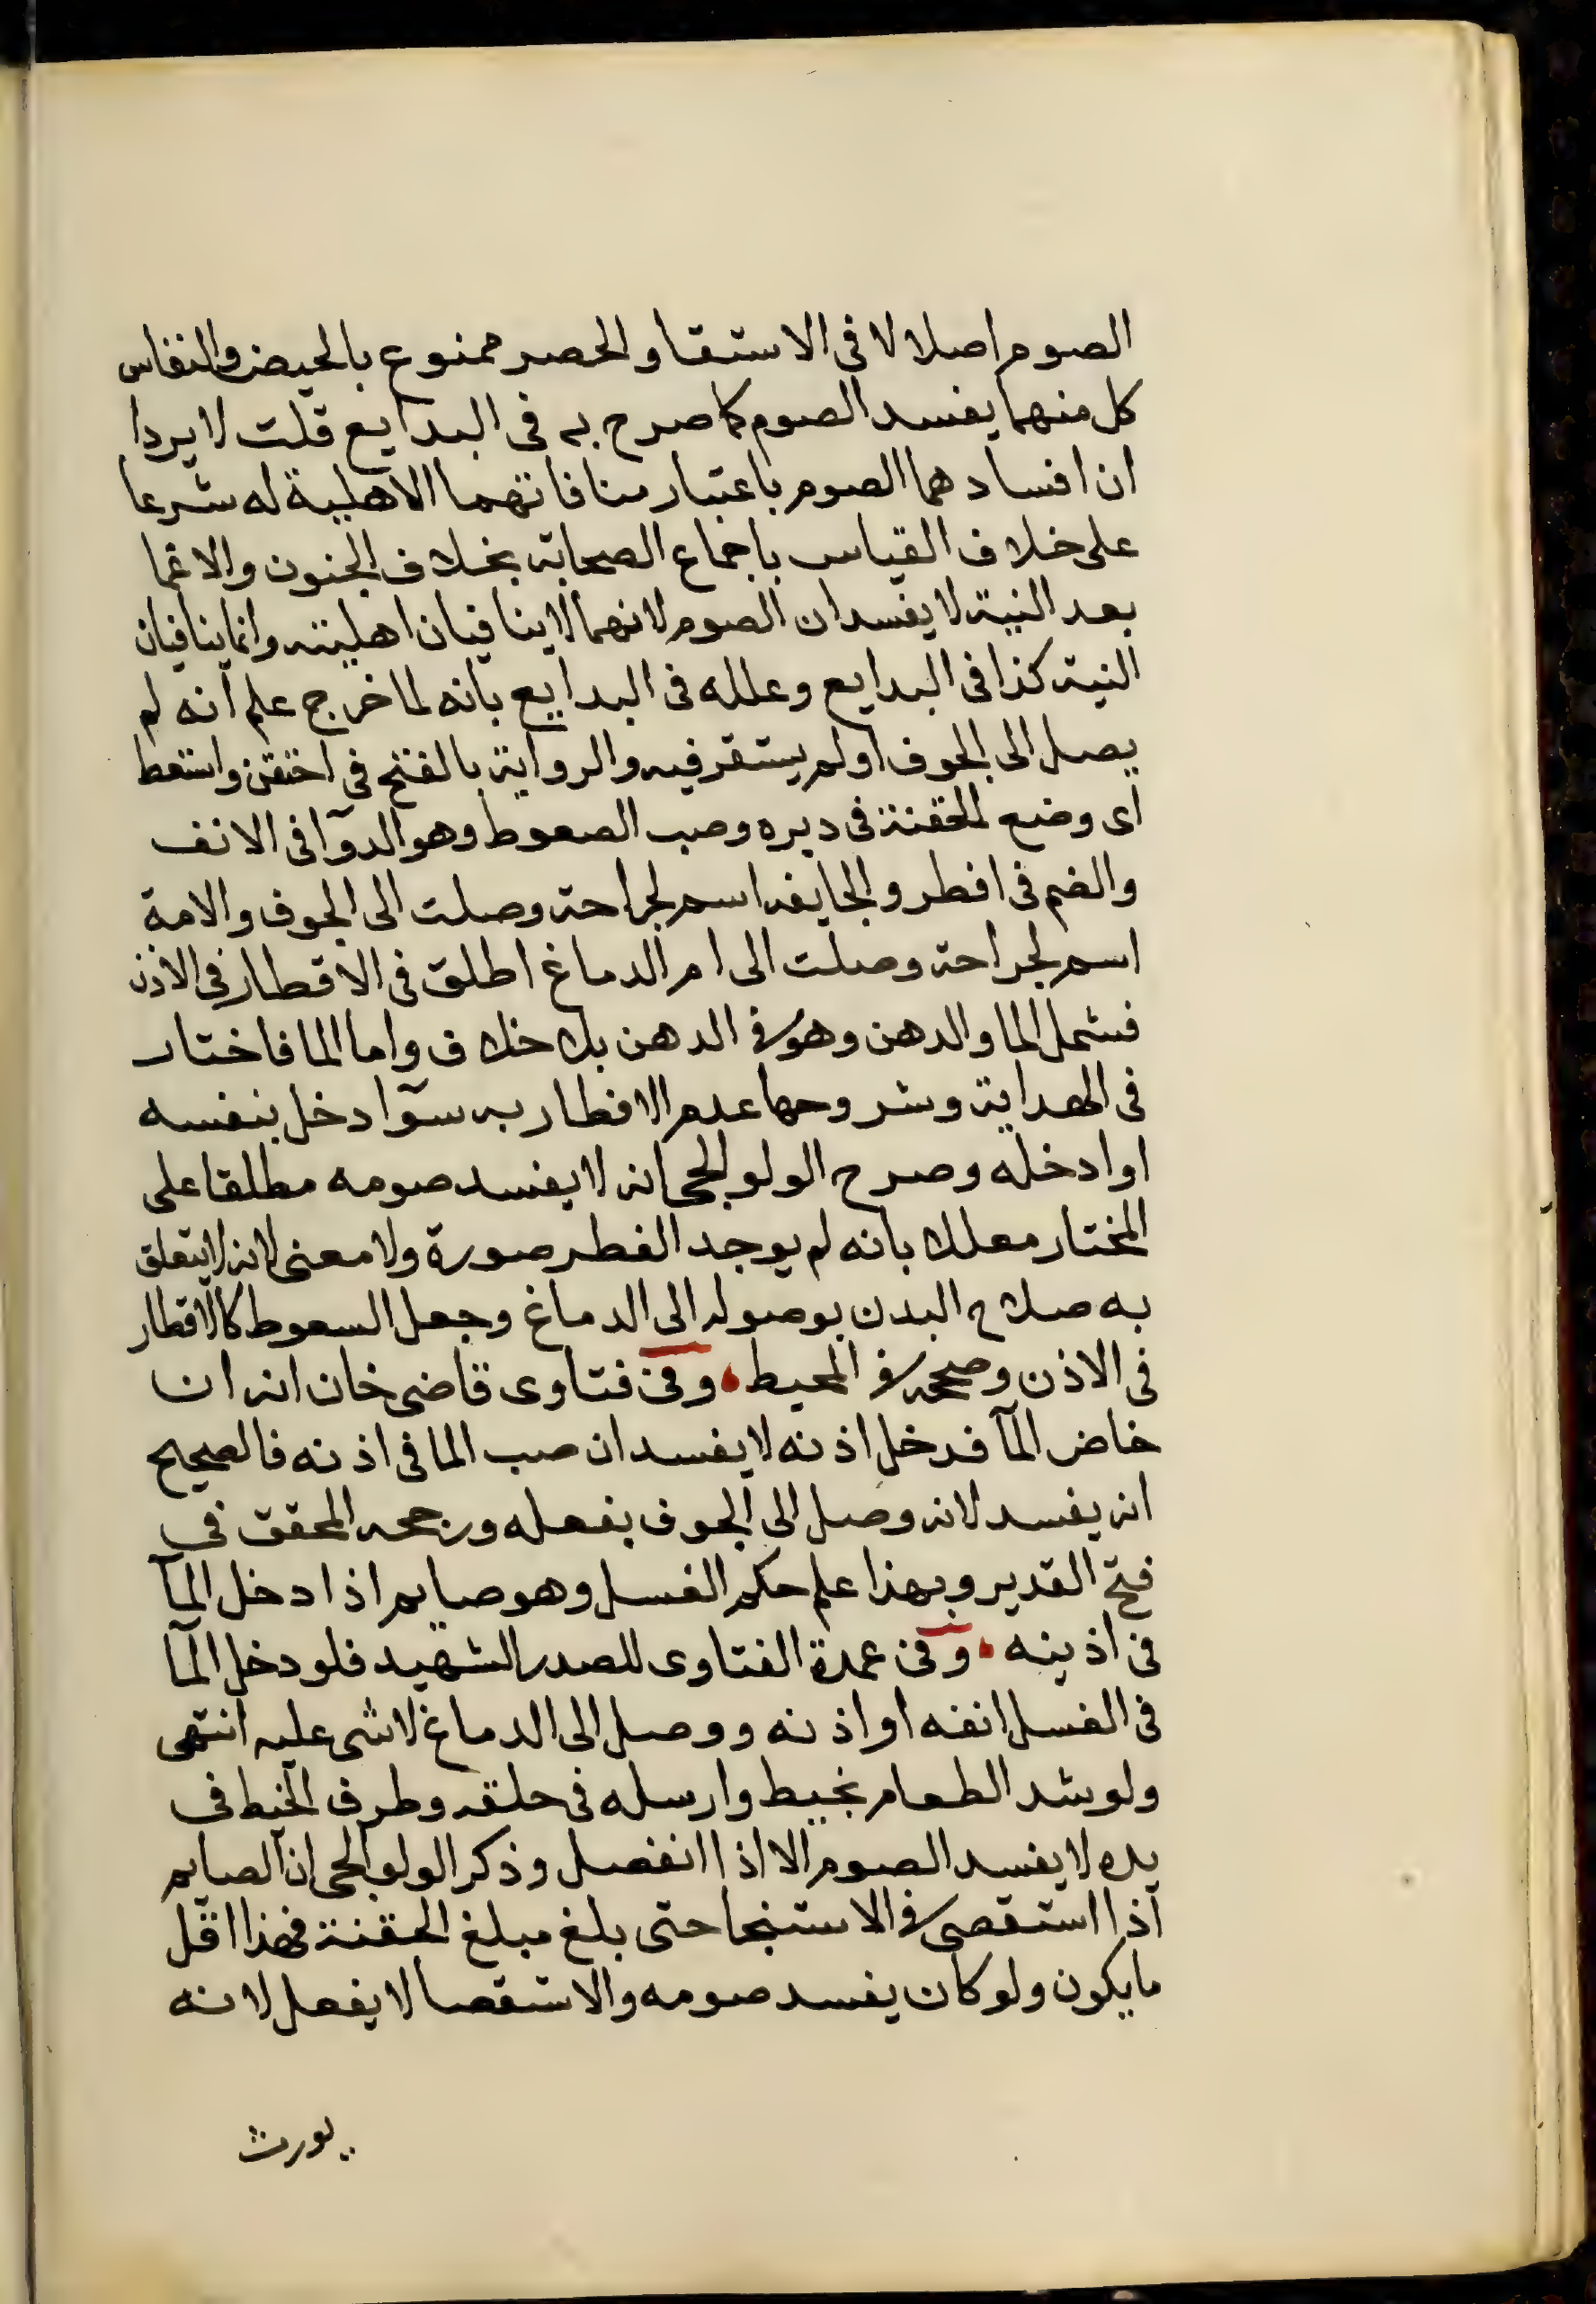 الصوم اصلا لا فى الاستقا والحصر ممنوع بالحيض والنفاس
كل منهما يفسد الصوم كما صرح به فى البدايع قلت لا يردا
ان افسادهما الصوم باعتبار منافاتهما الاهلية له شرعا
على خلاف القياس باجماع الصحابة بخلاف الجنون والاغما
بعد النية لا يفسدان الصوم لانهما لا ينافيان اهليته وانما ينافيان
النية كذا فى البدايع وعلله فى البدايع بانه لما خرج علم انه لم
يصل الى الجوف او لم يستقر فيه والرواية بالفتح فى احتقن واستعط
اى وضع الحقنة فى دبره وصب الصعوط وهو الدوآ فى الانف
والضم فى افطر والجايفه اسم لجراحة وصلت الى الجوف والامة
اسم لجراحة وصلت الى ام الدماغ اطلق فى الاقطار فى الاذن
فشمل الما والدهن وهو فى الدهن بلا خلاف واما الما فاختار
فى الهداية وشروحها عدم الافطار به سوآ دخل بنفسه
او ادخله وصرح الولوالجى انه لا يفسد صومه مطلقا على
المختار معللا بانه لم يوجد الفطر صورة ولا معنى لانه لا يتعلق
به صلاح البدن بوصوله الى الدماغ وجعل السعوط كالاقطار
فى الاذن وصححه فى المحيط وفى فتاوى قاضى خان انه ان
خاض المآ فدخل اذنه لا يفسد ان صب الما فى اذنه فالصحيح
انه يفسد لانه وصل الى الجوف بفعله ورجحه المحقق فى
فتح القدير وبهذا علم حكم الغسل وهو صايم اذا دخل المآ
فى اذينه وفى عمدة الفتاوى للصدر الشهيد فلو دخل المآ
فى الغسل انفه او اذنه ووصل الى الدماغ لا شى عليه انتهى
ولو شد الطعام بخيط وارسله فى حلقه وطرف الخيط فى
يده لا يفسد الصوم الا اذا انفصل وذكر الولوالجى ان الصايم
اذا استقصى فى الاستنجا حتى بلغ مبلغ الحقنة فهذا اقل
ما يكون ولو كان يفسد صومه والاستقصا لا يفعل لانه
يورث